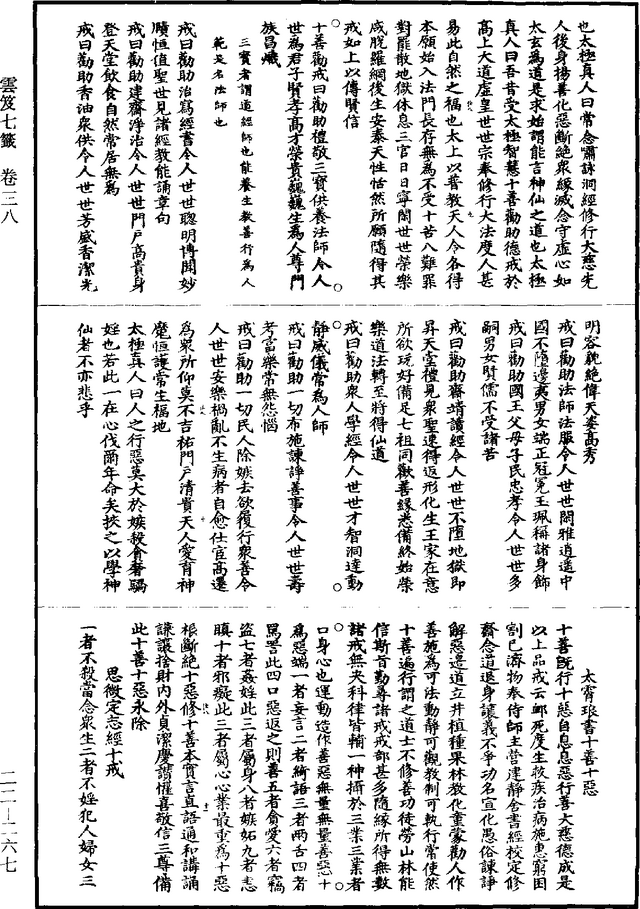 雲笈七籤 卷三八
二二—二六七
也太極真人曰常念嘯詠洞經修行大慈先
人後身揚善化惡斷絕衆緣滅念守虛心如
太玄為道是求始謂能言神仙之道也太極
真人曰吾昔受太極智慧十善勸助德戒於
高上大道虛皇世世宗奉修行大法度人甚
易此自然之福也太上以普教天人令各得
本願始入法門長存無為不受十苦八難罪
對罷散地獄休息三官日日寧閑世世榮樂
咸脫羅網後生安泰天性恬然所願隨得其
戒如上以傳賢信
十善勸戒曰勸助禮敬三寶供養法師令人
世為君子賢孝高才榮貴巍巍生為人尊門
族昌熾
三寶者謂道經師也能養生教善行為人
範是名法師也
戒曰勸助治寫經書令人世世聰明博聞妙
賾恒值聖世見諸經教能誦章句
戒曰勸助建齋淨治令人世世門戶高貴身
登天堂飲食自然常居無為
戒曰勸助香油衆供令人世世芳盛香潔光
明容貌絕偉天姿高秀
戒曰勸助法師法服令人世世閑雅逍遥中
國不墮邊夷男女端正冠冕玉珮稱諸身飾
戒曰勸助國王父母子民忠孝令人世世多
嗣男女賢儒不受諸苦
戒曰勸助齋靖讀經令人世世不墮地獄即
昇天堂禮見衆聖速得返形化生王家在意
所欲玩好備足七祖同歡善緣悉備終始榮
樂道法轉至將得仙道
戒曰勸助衆人學經令人世世才智洞達動
靜威儀常為人師
戒曰勸助一切布施諫諍善事令人世世壽
考富樂常無怨惱
戒曰勸助一切民人除嫉去欲履行衆善令
人世世安樂禍亂不生病者自愈仕宦高遷
為衆所仰莫不吉祐門戶清貴天人愛育神
魔恒護常生福地
太極真人曰人之行惡莫大於嫉殺貪奢驕
婬也若此一在心伐爾年命矣挾之以學神
仙者不亦悲乎
太霄琅書十善十惡
十善既行十惡自息息惡行善大慈德成是
以上品戒云卹死度生救疾治病施惠窮困
割己濟物奉侍師主營建靜舍書經校定修
齋念道退身讓義不爭功名宣化愚俗諫諍
解惡邊道立井植種果林教化童蒙勸人作
善施為可法動靜可觀教制可執行常使然
十善遍行謂之道士不修善功徒勞山林能
信斯旨勤尊諸戒戒部甚多隨緣所得無數
諸戒無央科律皆輔一神攝於三業三業者
口身心也運動造作善惡無量無量善惡十
為惡端一者妄言二者綺語三者兩舌四者
罵詈此四口惡返之則善五者貪愛六者竊
盜七者姦婬此三者屬身八者嫉妬九者恚
瞋十者邪癡此三者屬心心業最重為十惡
根斷絕十惡修十善本實言直語通和講誦
謙讓捨財內外貞潔慶讚懽喜敬信三尊備
此十善十惡永除
思微定志經十戒
一者不殺當念衆生二者不婬犯人婦女三